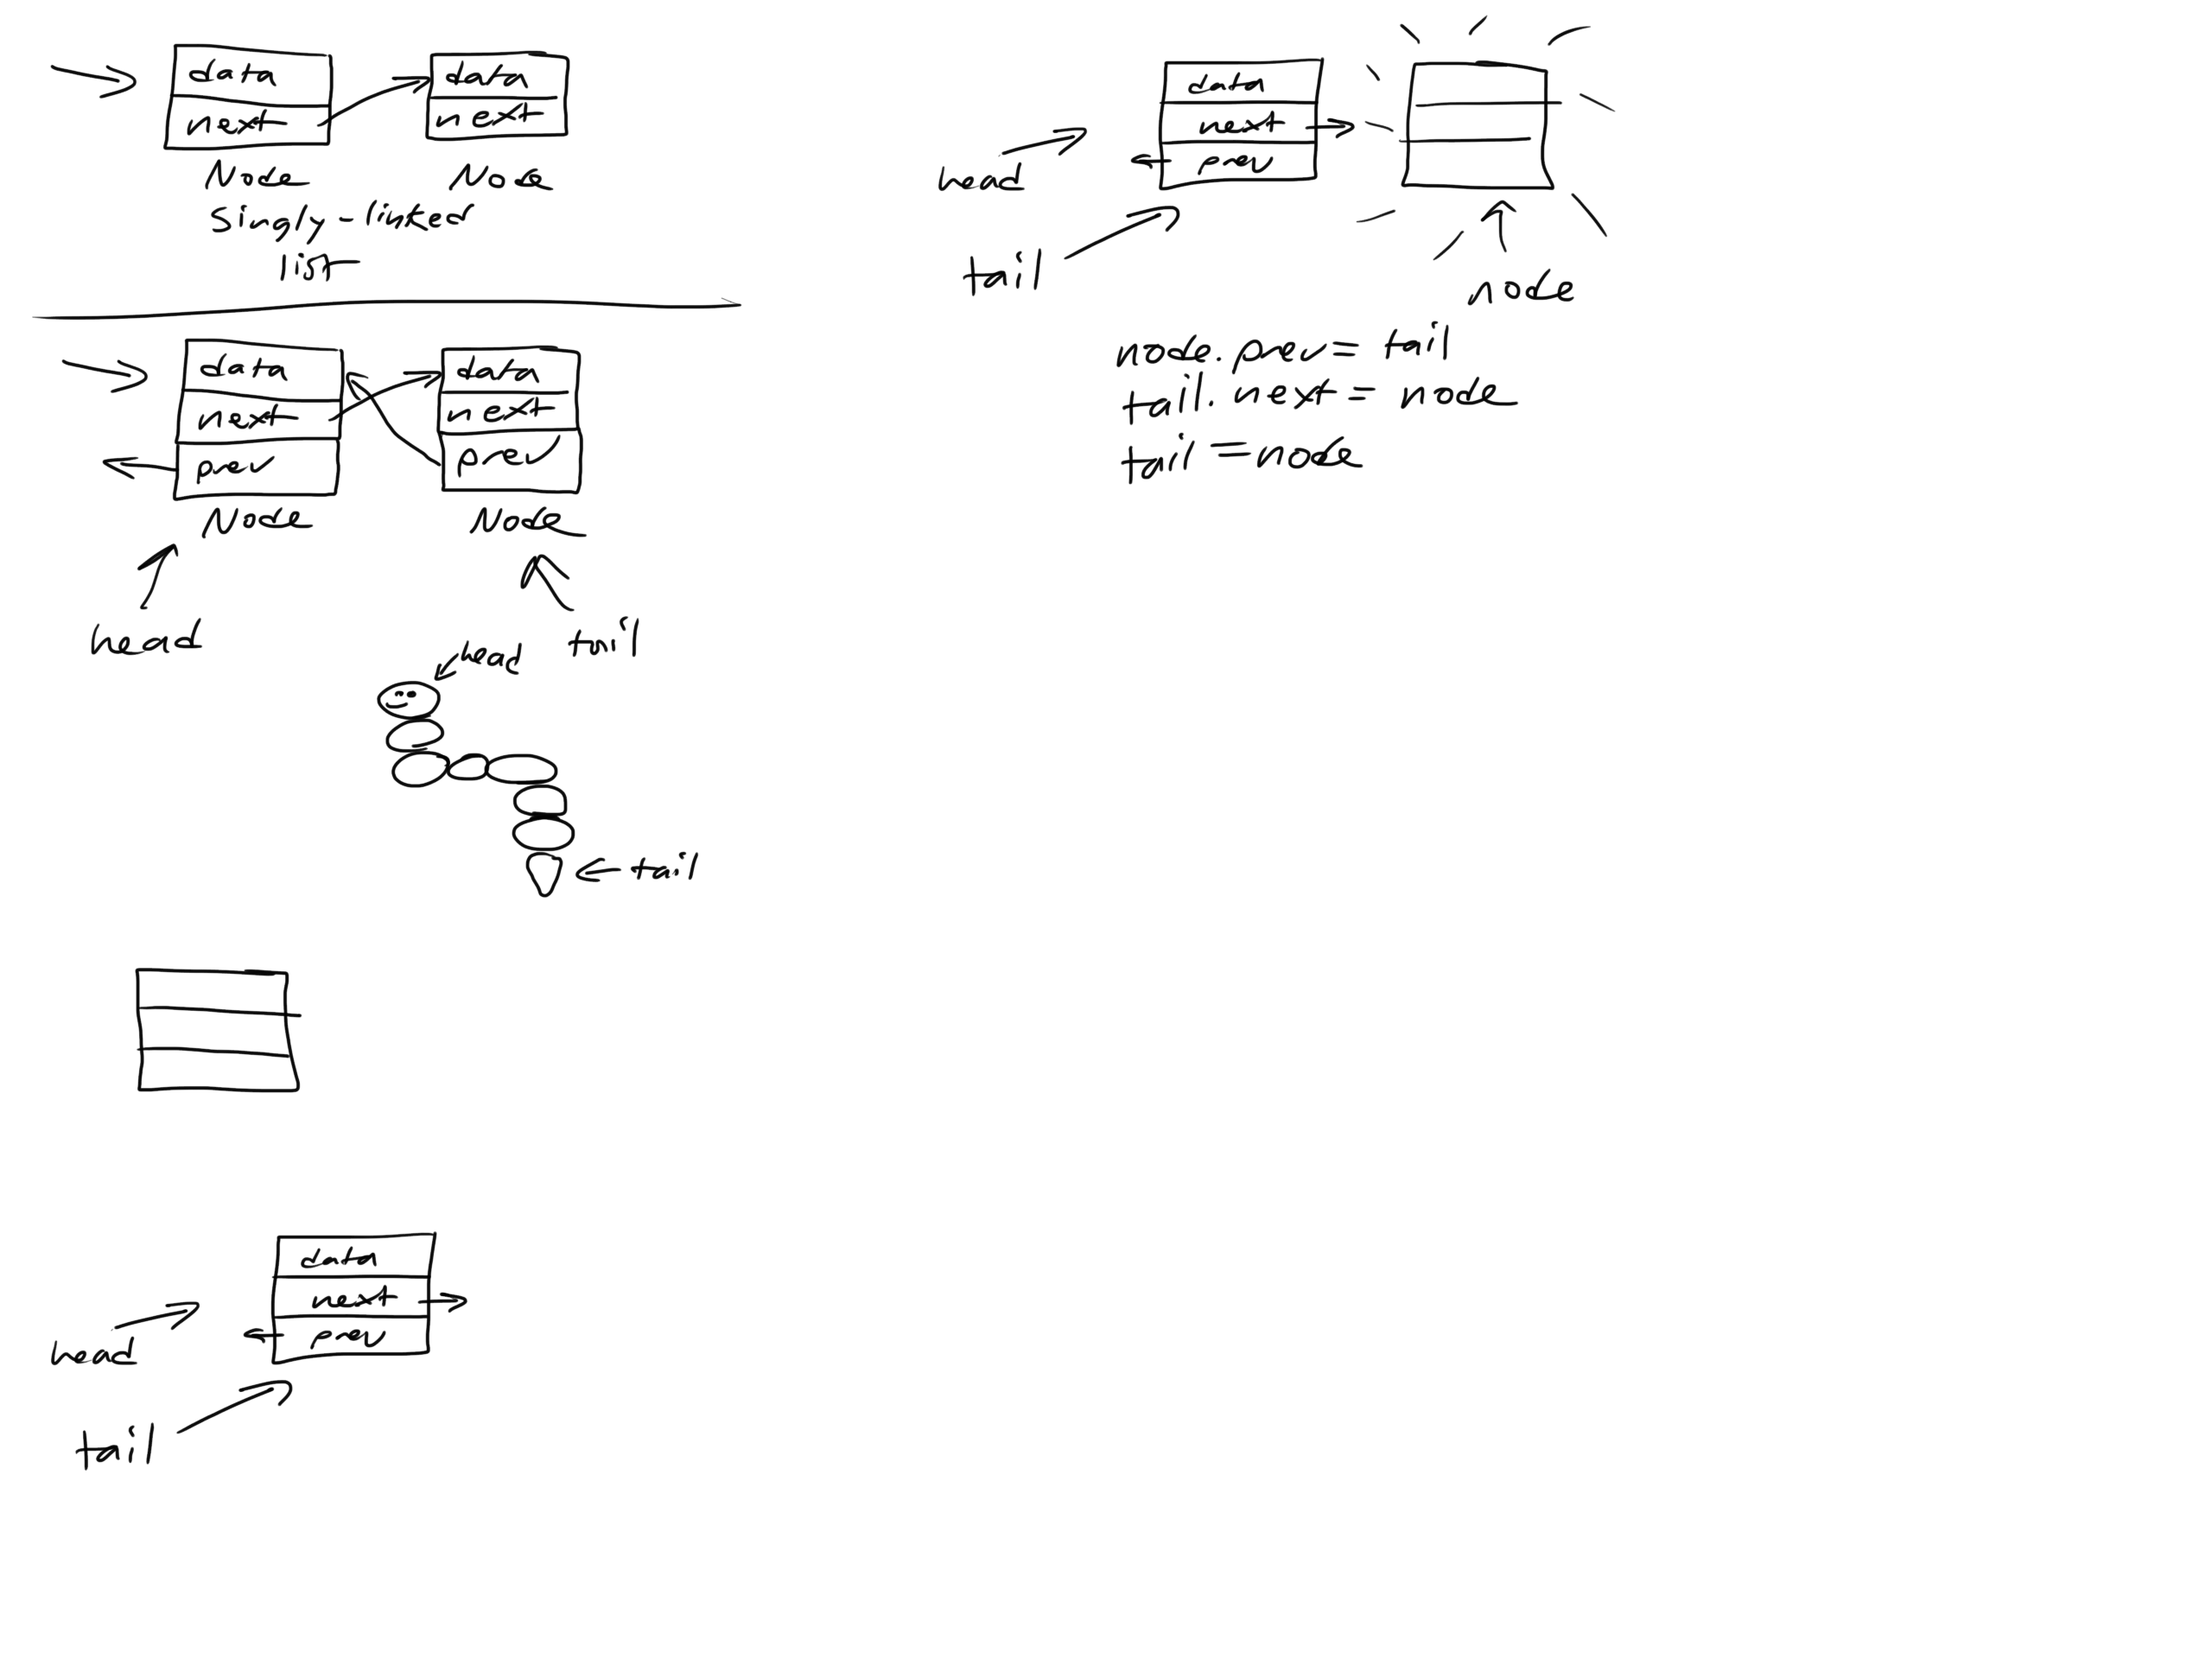 data
data
next
next
Node
Node
singly-linked
list
data
data
next
next
prev
prev
Node
Node
head
tail
head
tail
data
next
prev
head
tail
data
next
prev
head
tail
node
node.prev = tail
tail.next = node
tail = node